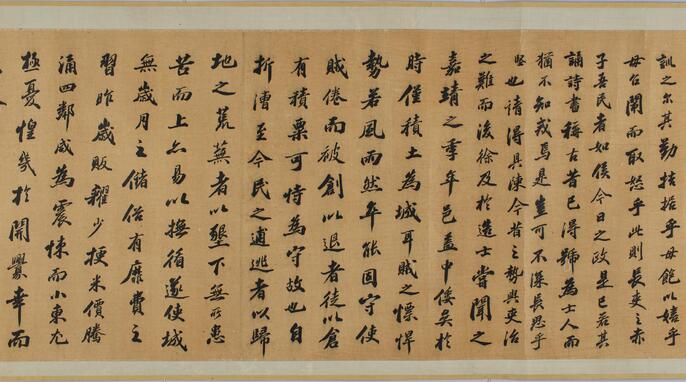 訓之尔其勤拮据乎毋飽以嬉乎
毋公閧而取怒乎此則長吏之赤
子吾民者如侯今日之政是已若其
誦詩書稱古昔已得號為士人而
猶不知戒焉是豈可不深長思乎
也請得具陳今昔之勢與吏治
之難而後徐及於造士嘗聞之
嘉靖之季年邑蓋中倭矣於
時僅積土為城耳賊之慓悍
勢若風雨然卒能固守使
賊倦而被創以退者徒以倉
有積粟可恃為守故也自
折漕至今民之逋逃者以歸
地之荒蕪者以墾下無所患
苦而上亦易以撫循遂使城
無歲月之儲俗有靡費之
習昨歲販糴少梗米價騰
涌四鄰咸為震悚而小東尤
極憂惶幾於開釁幸而